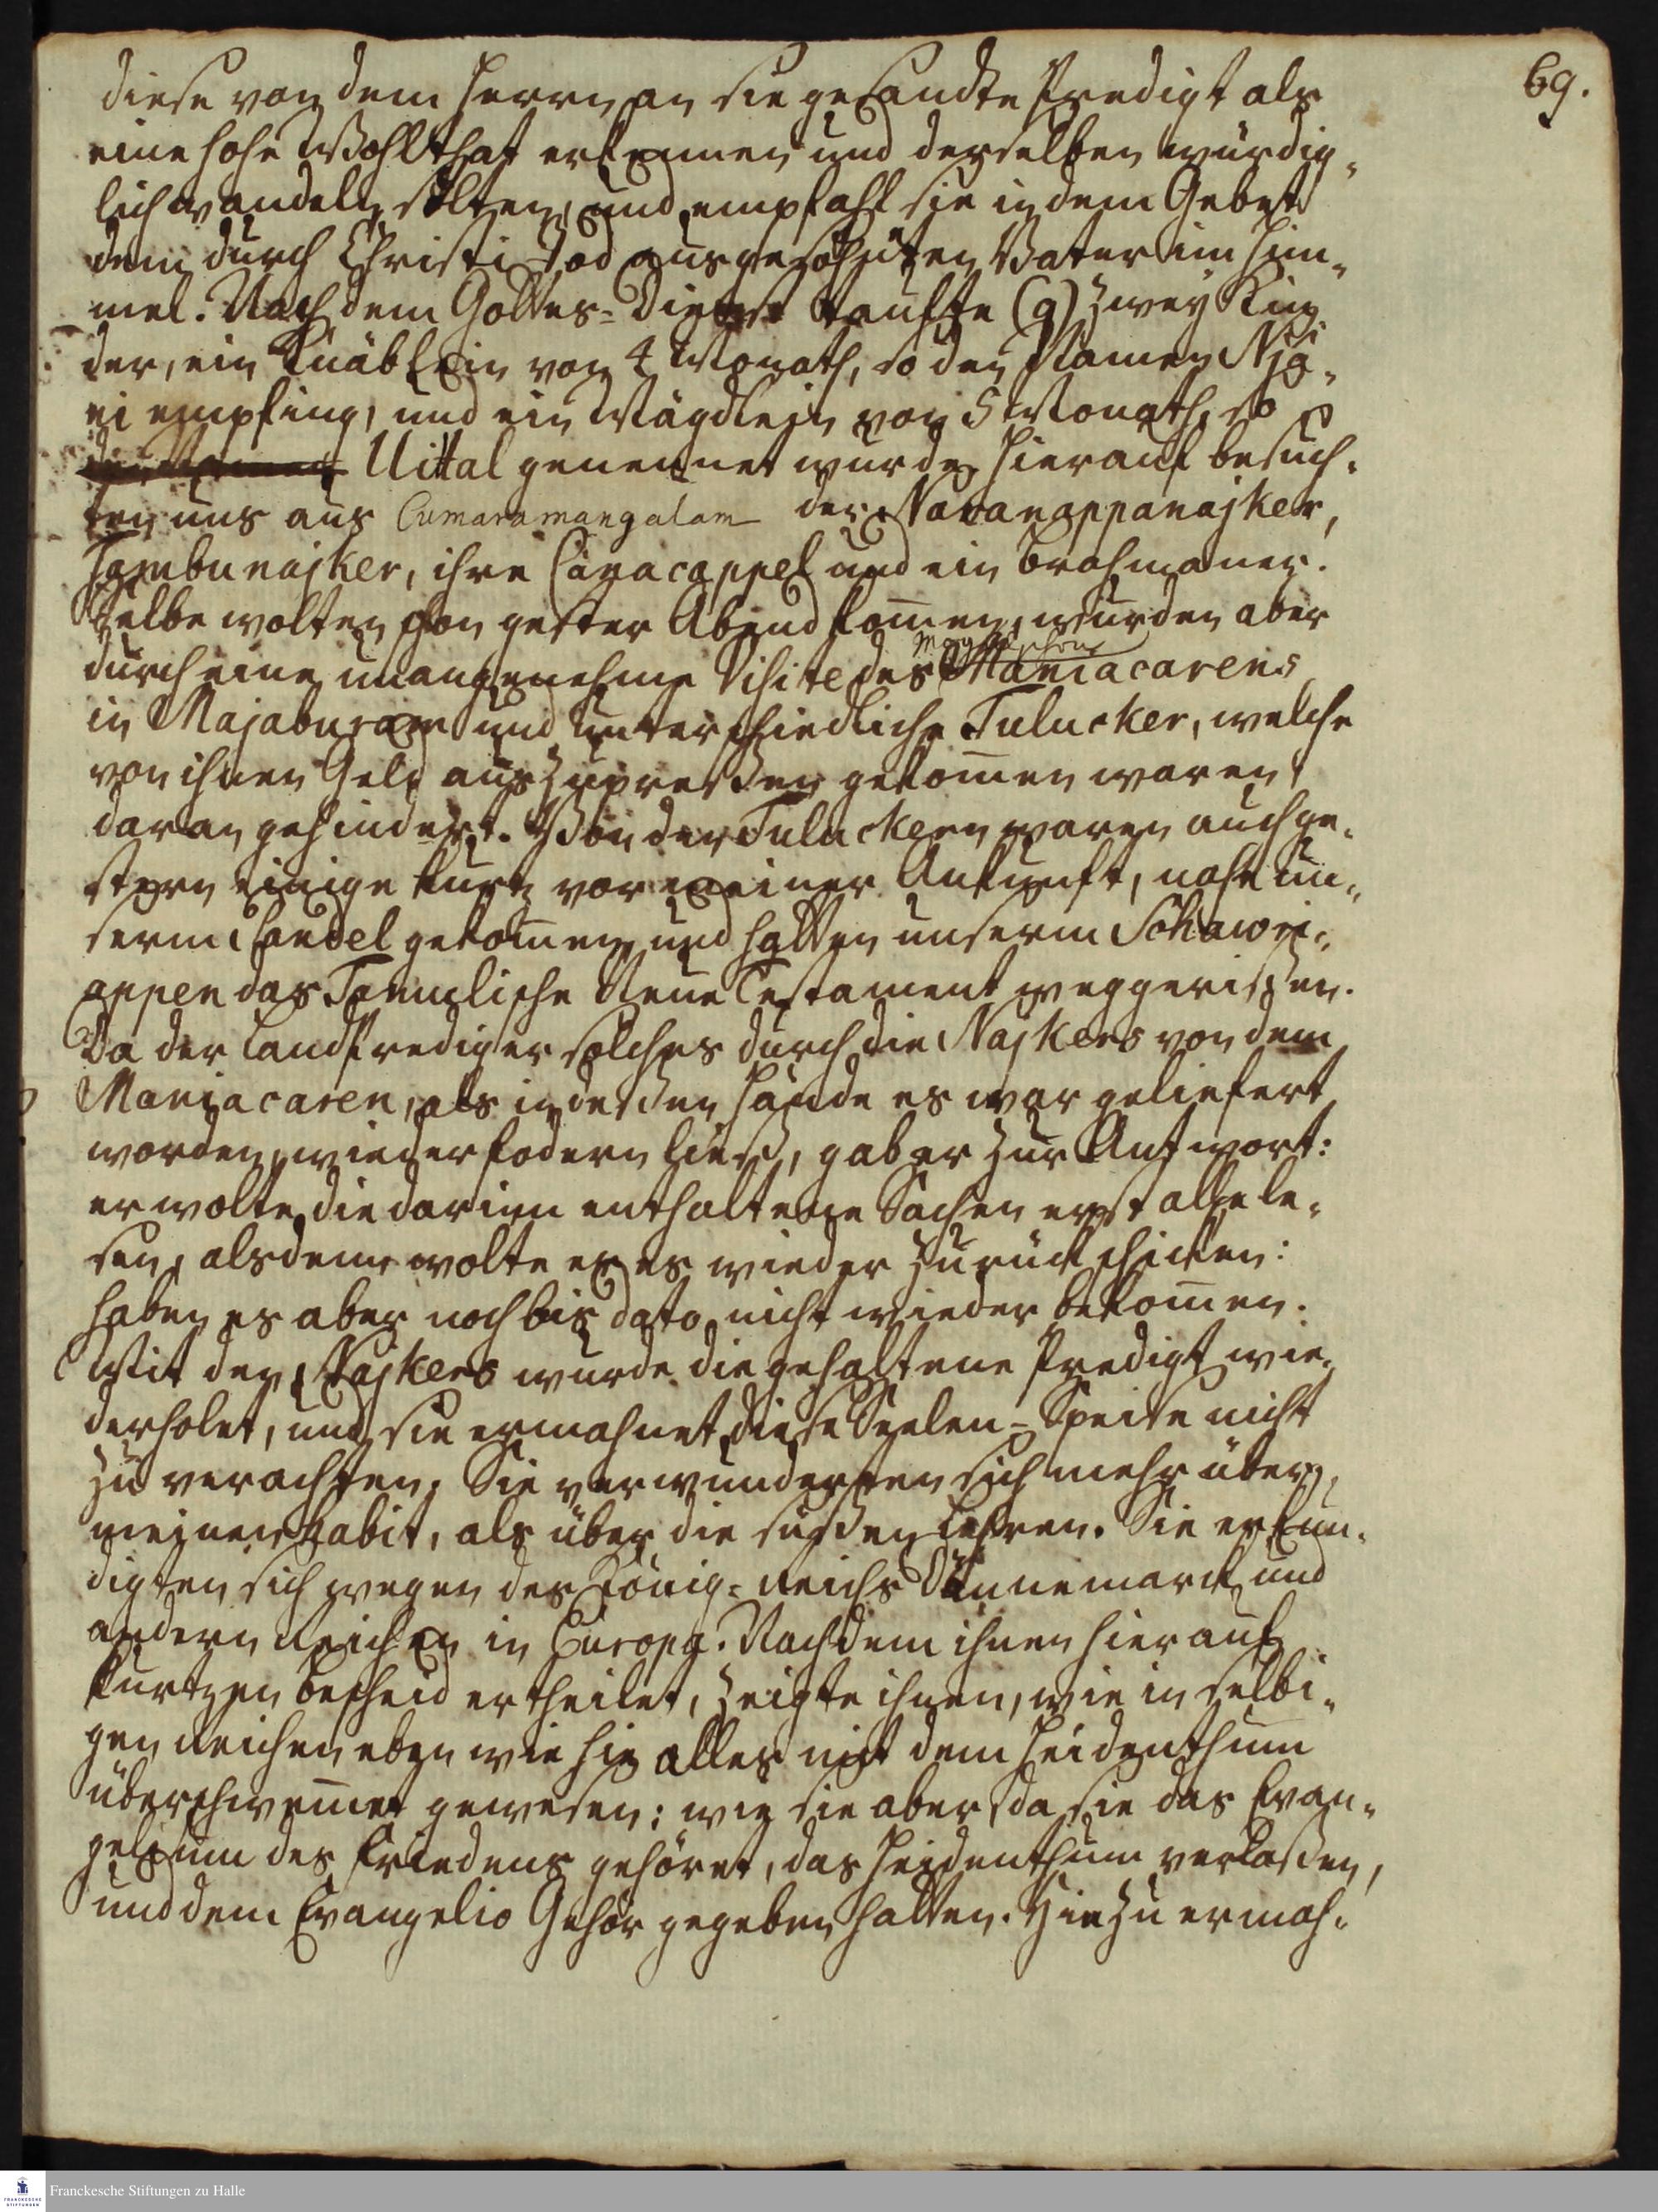 69.
diese von dem Herrn an sie gesandte Predigt als
eine hohe Wohlthat erkennen und derselben würdig-
lich wandeln solten, und empfahl sie in dem Gebet
dem durch Christi Tod ausgesöhnten Vater im Him-
mel. Nach dem Gottes-Dienst tauffte (g) zwey Kin-
der, ein Knäblein von 4 Monath, so den Namen Njä-
ei empfing, und ein Mägdlein von 5 Monath, so
den Namen Uittal genennet wurde. Hierauf besuch-
ten uns aus Cumaramangalam der Naranappanajker,
Jambunajker, ihre Canacappel und ein Brahmaner.
Selbe wolten schon gester Abend kom̄en, wurden aber
durch eine unangenehme Visite des Maniacarens
in Majaburam und unterschiedliche Tulucker, welche
von ihnen Geld auszupressen gekom̄en waren,
daran gehindert. Von den Tuluckern waren auch ge-
stern einige kurtz vor meiner Ankunft, nahe un-
serm Candel gekom̄en und hatten unserm Schawri-
appen das Tamulische Neue Testament weggerissen.
Da der Landprediger solches durch die Najkers von dem
Maniacaren, als in dessen Hände es war geliefert
worden, wieder fodern ließ, gab er zur Antwort:
er wolte die darinn enthaltene Sachen erst alle le-
sen, alsdenn wolte er es wieder zurück schicken:
haben es aber noch bis dato nicht wieder bekom̄en.
Mit den Najkers wurde die gehaltene Predigt wie-
derholet, und sie ermahnet diese Seelen-Speise nicht
zu verachten. Sie verwunderten sich mehr über
meinen Habit, als über die süssen Lehren. Sie erkun-
digten sich wegen des König-Reichs Dännemarck und
andern Reichen in Europa. Nachdem ihnen hierauf
kurtzen Bescheid ertheilet, zeigte ihnen, wie in selbi-
gen Reichen eben wie hie alles mit dem Heidenthum
überschwem̄et gewesen; wie sie aber, da sie das Evan-
gelium des Friedens gehöret, das Heidenthum verlassen,
und dem Evangelio Gehör gegeben hätten. Hiezu ermah-
Franckesche Stiftungen zu Halle